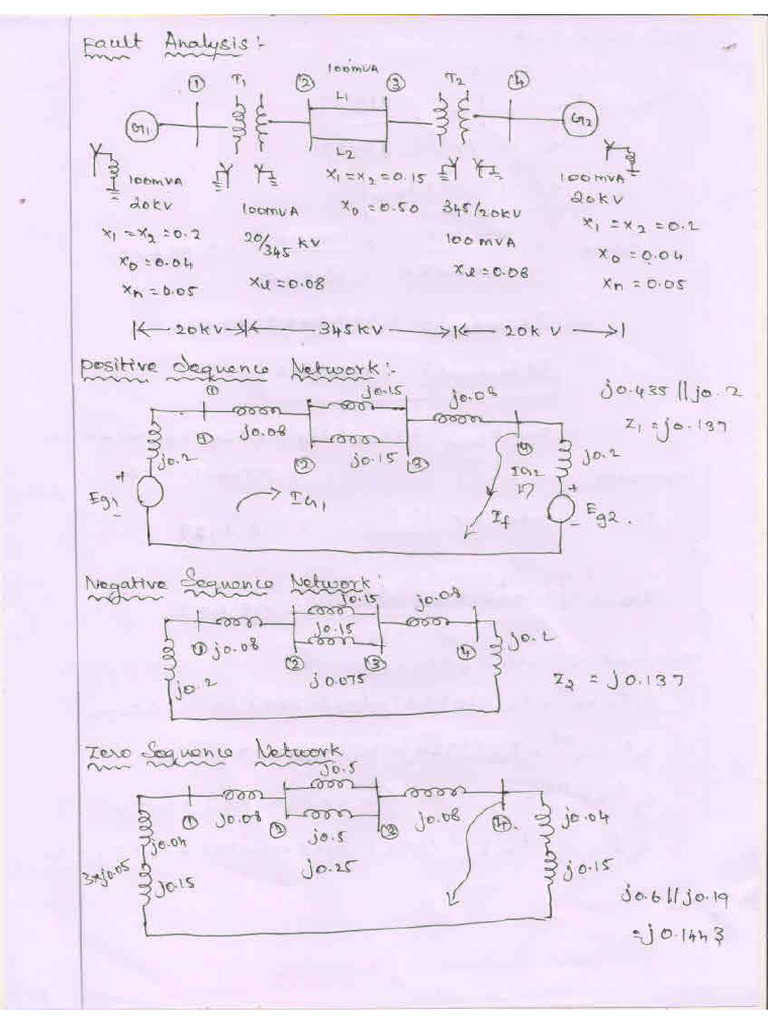 Fault Analysis :-
100MVA
① T1 ② L1 ③ T2 ④
G1 G2
L2
100MVA X1 = X2 = 0.15 100MVA
20KV 100MVA X0 = 0.50 345/20KV 20KV
X1 = X2 = 0.2 20/345 KV 100 MVA X1 = X2 = 0.2
X0 = 0.04 Xl = 0.08 Xl = 0.08 X0 = 0.04
Xn = 0.05 Xn = 0.05
|← 20KV →|← 345KV →|← 20K V →|
Positive Sequence Network :-
① j0.15 j0.08 j0.435 || j0.2
① j0.08 ④ Z1 = j0.137
j0.2 ② j0.15 ③ IG2 j0.2
+ +
Eg1 → IG1 If Eg2.
- -
Negative Sequence Network :
j0.15 j0.08
① j0.08 j0.15 ④ j0.2
② ③
j0.2 j0.075 Z2 = j0.137
Zero Sequence Network
j0.5
① j0.08 ② ③ j0.08 ④. j0.04
j0.04 j0.5
3xj0.05 j0.15 j0.25 j0.15
j0.6 || j0.19
= j0.1443